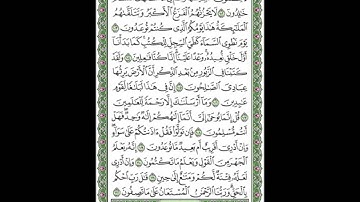 خَٰلِدُونَ ﴿١٠٢﴾ لَا يَحْزُنُهُمُ ٱلْفَزَعُ ٱلْأَكْبَرُ وَتَتَلَقَّىٰهُمُ
ٱلْمَلَٰٓئِكَةُ هَٰذَا يَوْمُكُمُ ٱلَّذِى كُنتُمْ تُوعَدُونَ ﴿١٠٣﴾
يَوْمَ نَطْوِى ٱلسَّمَآءَ كَطَىِّ ٱلسِّجِلِّ لِلْكُتُبِ كَمَا بَدَأْنَآ
أَوَّلَ خَلْقٍ نُّعِيدُهُۥ وَعْدًا عَلَيْنَآ إِنَّا كُنَّا فَٰعِلِينَ ﴿١٠٤﴾ وَلَقَدْ
كَتَبْنَا فِى ٱلزَّبُورِ مِنۢ بَعْدِ ٱلذِّكْرِ أَنَّ ٱلْأَرْضَ يَرِثُهَا
عِبَادِىَ ٱلصَّٰلِحُونَ ﴿١٠٥﴾ إِنَّ فِى هَٰذَا لَبَلَٰغًا لِّقَوْمٍ
عَٰبِدِينَ ﴿١٠٦﴾ وَمَآ أَرْسَلْنَٰكَ إِلَّا رَحْمَةً لِّلْعَٰلَمِينَ ﴿١٠٧﴾
قُلْ إِنَّمَا يُوحَىٰٓ إِلَىَّ أَنَّمَآ إِلَٰهُكُمْ إِلَٰهٌ وَٰحِدٌ فَهَلْ
أَنتُم مُّسْلِمُونَ ﴿١٠٨﴾ فَإِن تَوَلَّوْا۟ فَقُلْ ءَاذَنتُكُمْ عَلَىٰ سَوَآءٍ
وَإِنْ أَدْرِىٓ أَقَرِيبٌ أَم بَعِيدٌ مَّا تُوعَدُونَ ﴿١٠٩﴾ إِنَّهُۥ يَعْلَمُ
ٱلْجَهْرَ مِنَ ٱلْقَوْلِ وَيَعْلَمُ مَا تَكْتُمُونَ ﴿١١٠﴾ وَإِنْ أَدْرِى
لَعَلَّهُۥ فِتْنَةٌ لَّكُمْ وَمَتَٰعٌ إِلَىٰ حِينٍ ﴿١١١﴾ قَٰلَ رَبِّ ٱحْكُم
بِٱلْحَقِّ وَرَبُّنَا ٱلرَّحْمَٰنُ ٱلْمُسْتَعَانُ عَلَىٰ مَا تَصِفُونَ ﴿١١٢﴾